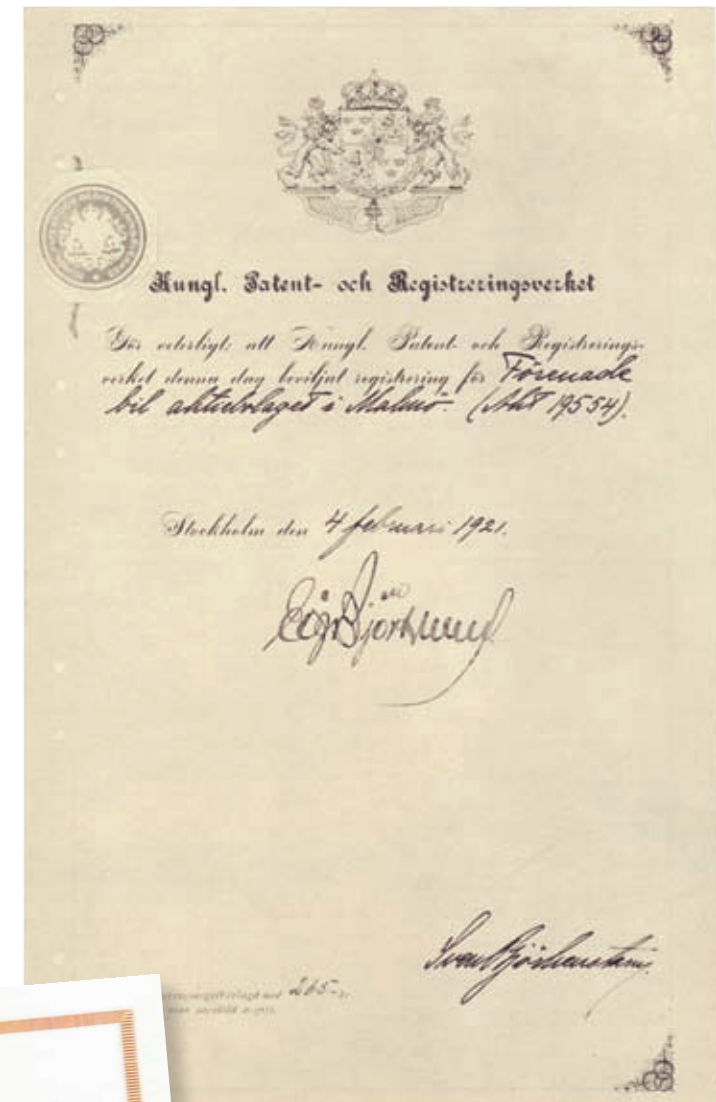 Kungl. Patent- och Registreringsverket
Gör veterligt: att Kungl. Patent- och Registrerings-
verket denna dag beviljat registrering för Förenade
bil aktiebolaget i Malmö. (Akt 19554).
Stockholm den 4 februari 1921.
Björklund
Sven Björkenstam
265-